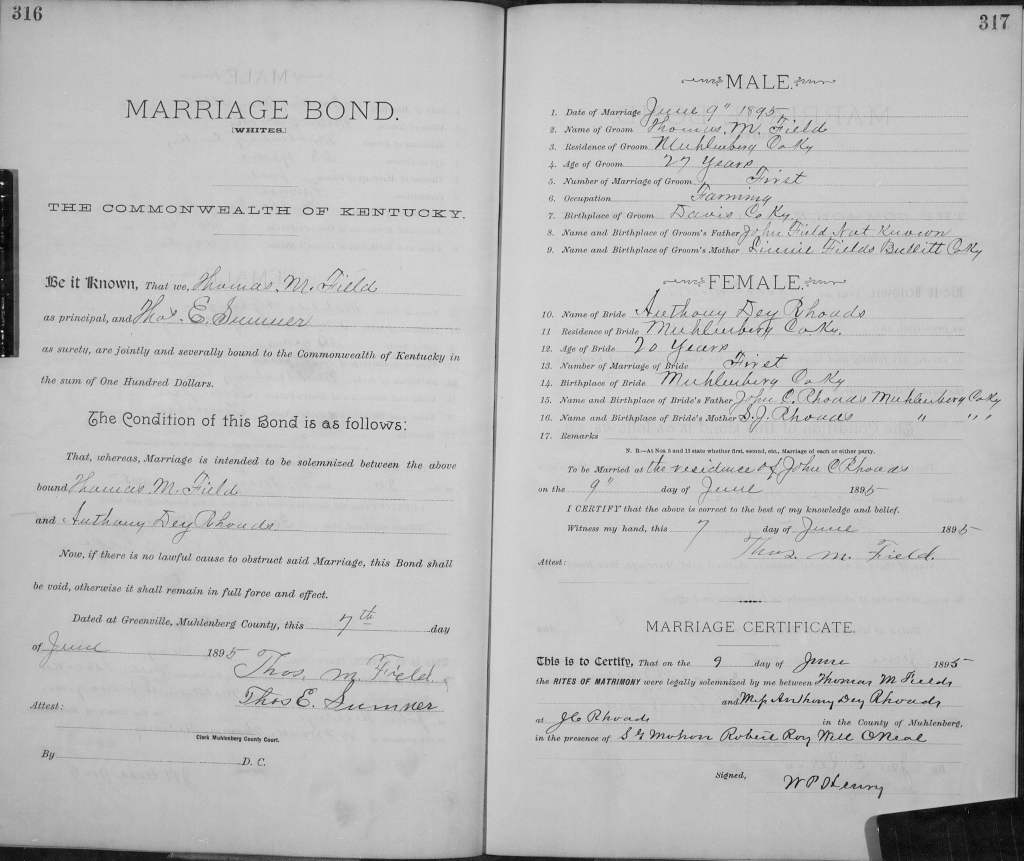 316
MARRIAGE BOND.
[WHITES.]
THE COMMONWEALTH OF KENTUCKY.
Be it Known, That we, Thomas. M. Field
as principal, and Thos. E. Sumner
as surety, are jointly and severally bound to the Commonwealth of Kentucky in
the sum of One Hundred Dollars.
The Condition of this Bond is as follows:
That, whereas, Marriage is intended to be solemnized between the above
bound Thomas M. Field
and Anthony Dey Rhoads
Now, if there is no lawful cause to obstruct said Marriage, this Bond shall
be void, otherwise it shall remain in full force and effect.
Dated at Greenville, Muhlenberg County, this 7th day
of June 1895
Thos. M Field
Thos E. Sumner
Attest:
Clerk Muhlenberg County Court.
By D. C.
317
MALE.
1. Date of Marriage June 9" 1895
2. Name of Groom Thomas. M. Field
3. Residence of Groom Muhlenberg Co Ky
4. Age of Groom 27 Years
5. Number of Marriage of Groom First
6. Occupation Farming
7. Birthplace of Groom Davis Co Ky
8. Name and Birthplace of Groom's Father John Field Not Known
9. Name and Birthplace of Groom's Mother Fields Bullitt Co Ky
FEMALE.
10. Name of Bride Anthony Dey Rhoads
11 Residence of Bride Muhlenberg Co Ky.
12. Age of Bride 20 Years
13. Number of Marriage of Bride First
14. Birthplace of Bride Muhlenberg Co Ky
15. Name and Birthplace of Bride's Father John C. Rhoads Muhlenberg Co Ky
16. Name and Birthplace of Bride's Mother S. J. Rhoads " " "
17. Remarks
N. B.—At Nos. 5 and 13 state whether first, second, etc., Marriage of each or either party.
To be Married at the residence of John C Rhoads
on the 9" day of June 1895
I CERTIFY that the above is correct to the best of my knowledge and belief.
Witness my hand, this 7 day of June 1895
Thos. M. Field.
Attest:
MARRIAGE CERTIFICATE.
This is to Certify, That on the 9 day of June 1895
the RITES OF MATRIMONY were legally solemnized by me between Thomas M Fields
and Miss Anthony Dey Rhoads
at J C Rhoads in the County of Muhlenberg,
in the presence of Mohon Robert Roy Will ONeal
Signed,
W P Henry